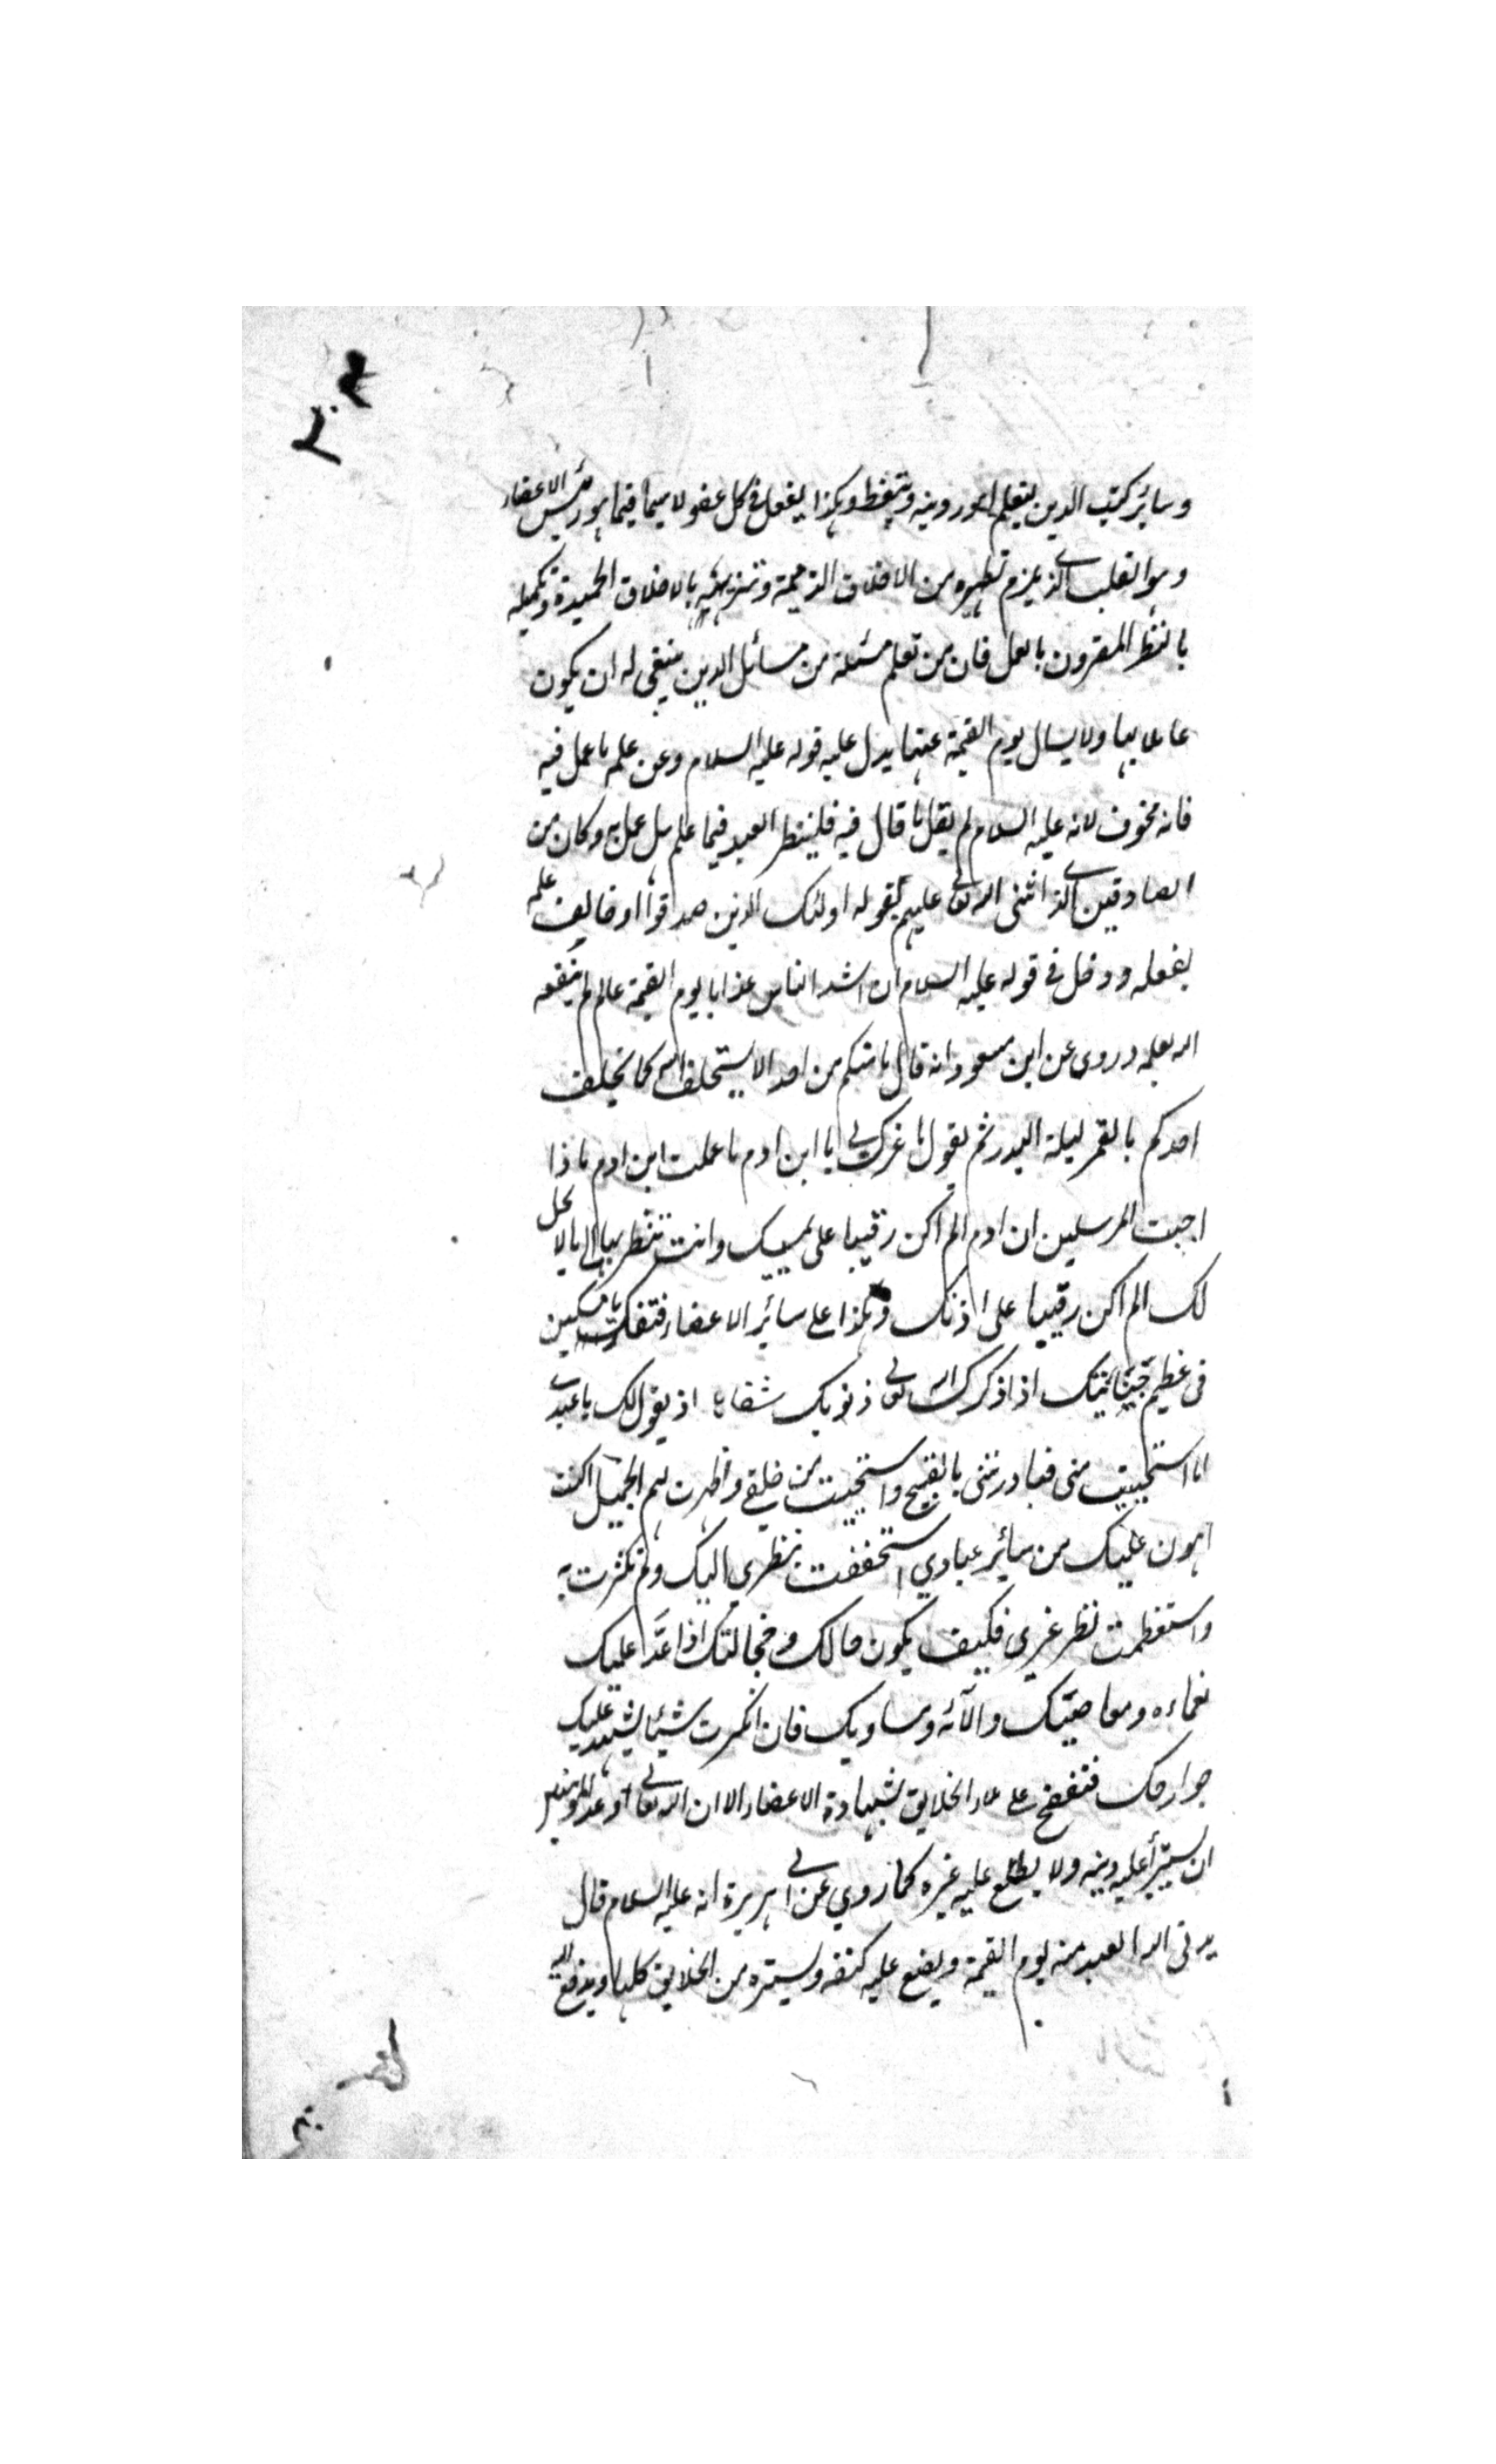 وسائر كتب الدين ليتعلم امور دينه ويتيقظ وهكذا يفعل فى كل عضو لا سيما فيما هو رئيس الاعضاء
وهو القلب الذى يلزم تطهيره من الاخلاق الذميمة وتزيينه بالاخلاق الحميدة وتكميله
بالنظر المقرون بالعمل فان من تعلم مسئلة من مسائل الدين ينبغى له ان يكون
عاملا بها ولا يسال يوم القيمة عنها يدل عليه قوله عليه السلام وعن علمه ما عمل فيه
فانه مخوف لانه عليه السلام لم يقل ما قال فيه فلينظر العبد فيما علم هل عمل به وكان من
الصادقين الذى اثنى الله تعالى عليهم بقوله اولئك الذين صدقوا او خالف علمه
بفعله ودخل فى قوله عليه السلام ان اشد الناس عذابا يوم القيمة عالم لم ينفعه
الله بعلمه وروى عن ابن مسعود انه قال ما منكم من احد الا يستخلف الله كما يخلف
احدكم بالقمر ليلة البدر ثم يقول ما غرك بى يا ابن ادم ما عملت ابن ادم ماذا
اجبت المرسلين ابن ادم الم اكن رقيبا على عينيك وانت تنظر بها الى ما لا يحل
لك الم اكن رقيبا على اذنك وهكذا على سائر الاعضاء فتفكر يا مسكين
فى عظيم جنايتك اذا ذكرك الله تعالى ذنوبك شفاها اذ يقول لك يا عبدى
اما استحييت منى فبادرتنى بالقبيح واستحييت من خلقى واظهرت لهم الجميل اكنت
اهون عليك من سائر عبادي استخففت بنظري اليك ولم تكترث به
واستعظمت نظر غيري فكيف يكون حالك وخجالتك اذا عدّ عليك
نعماءه ومعاصيك والآئه ومساويك فان انكرت شيئا يشهد عليك
جوارحك فتفضح على ملاء الخلايق بشهادة الاعضاء الا ان الله تعالى وعد للمؤمنين
ان يستر عليه دينه ولا يطلع عليه غيره كما روي عن ابى هريرة انه عليه السلام قال
يدنى الله العبد منه يوم القيمة ويضع عليه كنفه ويستره من الخلايق كلها ويدفع اليه